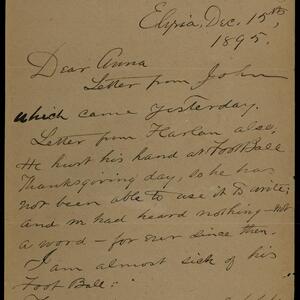 Elyria, Dec. 15th,
1895.
Dear Anna
Letter from John
which came yesterday.
Letter from Harlan also,
He hurt his hand at Foot Ball
Thanksgiving day, so he has
not been able to use it to write;
and we had heard nothing - not
a word - for ever since then.
I am almost sick of his
Foot Ball!